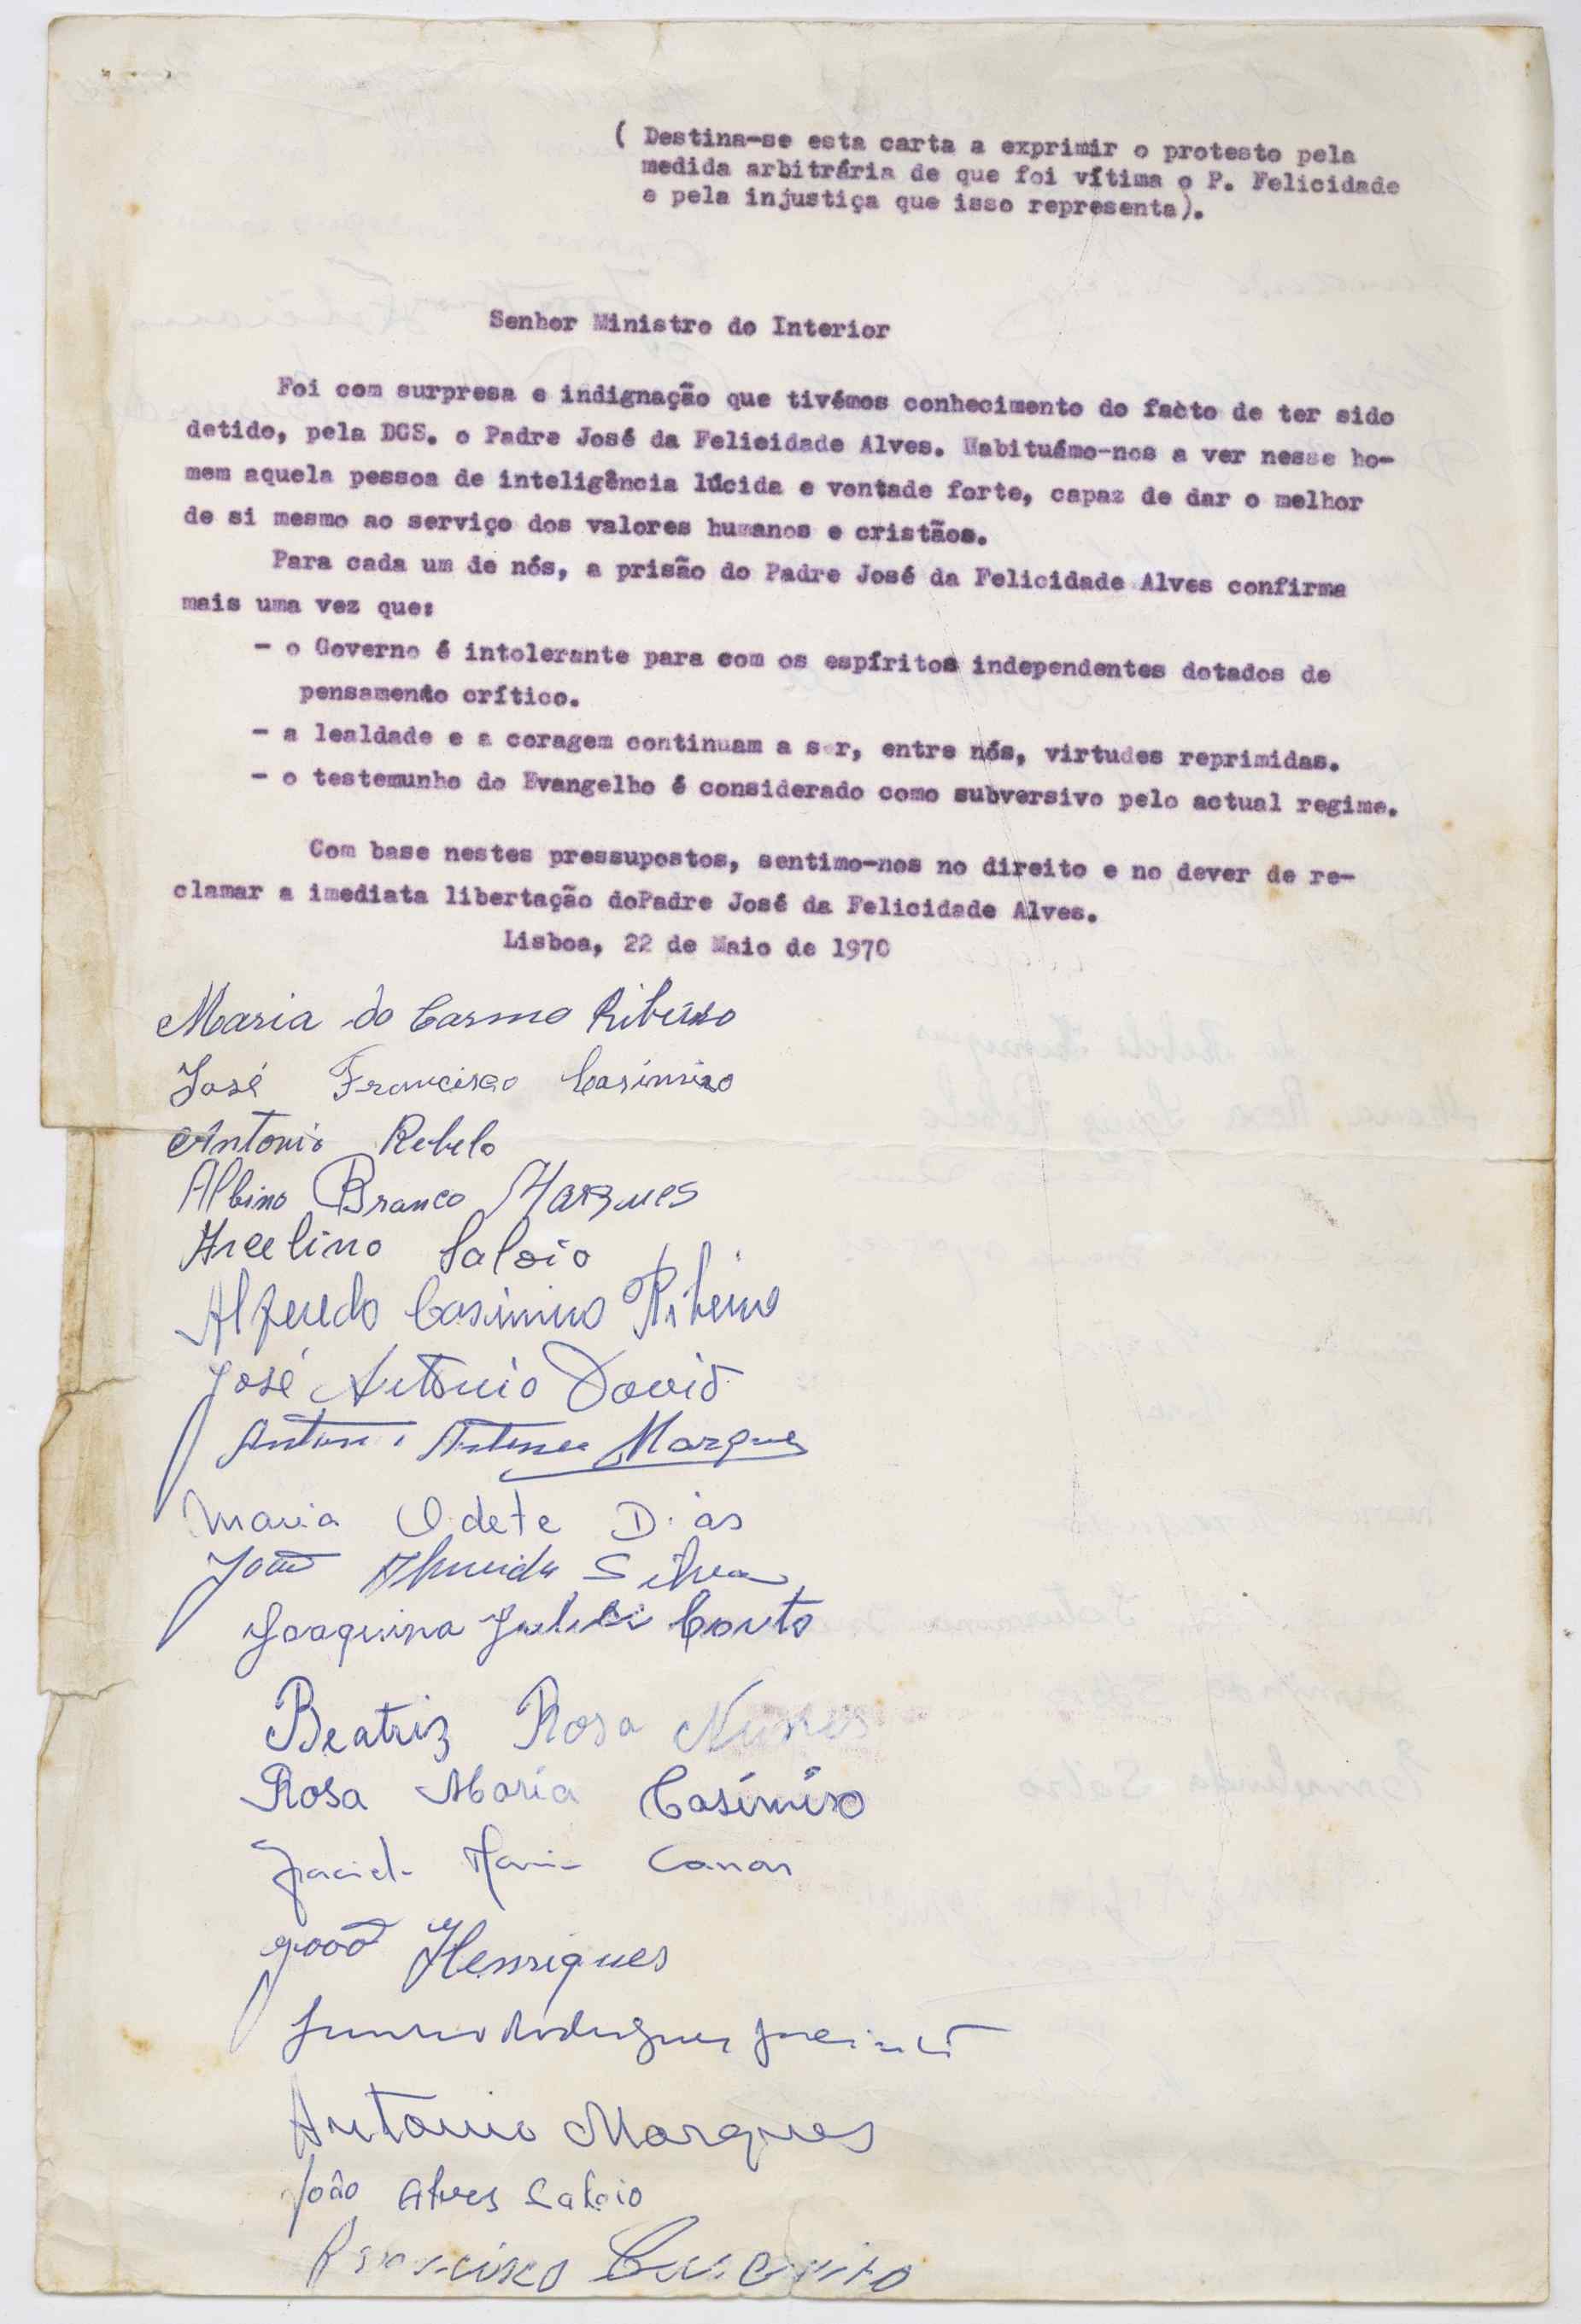 ( Destina-se esta carta a exprimir o protesto pela
medida arbitrária de que foi vítima o P. Felicidade
e pela injustiça que isso representa).
Senhor Ministro do Interior
Foi com surpresa e indignação que tivémos conhecimento do facto de ter sido
detido, pela DGS. o Padre José da Felicidade Alves. Habituámo-nos a ver nesse ho-
mem aquela pessoa de inteligência lúcida e vontade forte, capaz de dar o melhor
de si mesmo ao serviço dos valores humanos e cristãos.
Para cada um de nós, a prisão do Padre José da Felicidade Alves confirma
mais uma vez que:
- o Governo é intolerante para com os espíritos independentes dotados de
pensamento crítico.
- a lealdade e a coragem continuam a ser, entre nós, virtudes reprimidas.
- o testemunho do Evangelho é considerado como subversivo pelo actual regime.
Com base nestes pressupostos, sentimo-nos no direito e no dever de re-
clamar a imediata libertação doPadre José da Felicidade Alves.
Lisboa, 22 de Maio de 1970
Maria do Carmo Ribeiro
José Francisco Casimiro
Antonio Rebelo
Albino Branco Marques
Arcelino Saloio
Alfredo Casimiro Ribeiro
José António David
Marques
Maria Odete Dias
João Almeida Silva
Joaquina Couto
Beatriz Rosa Nunes
Rosa Maria Casimiro
Maria
João Henriques
Rodrigues
António Marques
João Alves Saloio
Francisco